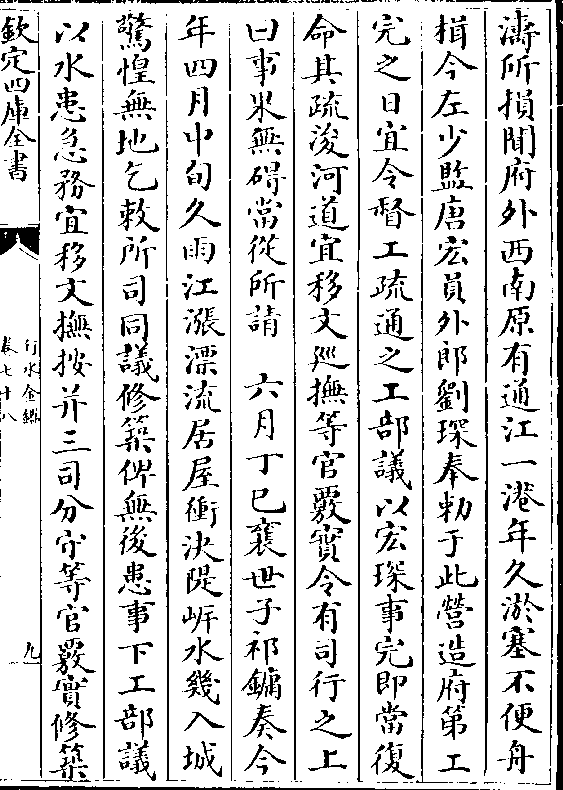 濤所損聞府外西南原有通江一港年久淤塞不便舟
楫今左少監唐宏員外郎劉琛奉勅于此營造府第工
完之日宜令督工疏通之工部議以宏琛事完即當復
命其疏浚河道宜移文廵撫等官覈實令有司行之上
曰事果無碍當從所請　六月丁巳襄世子祁鏞奏今
年四月中旬久雨江漲漂流居屋衝決隄岍水幾入城
驚惶無地乞敕所司同議修築俾無後患事下工部議
以水患急務宜移文撫按并三司分守等官覈實修築
欽定四庫全書
行水金鑑
卷七十八
九